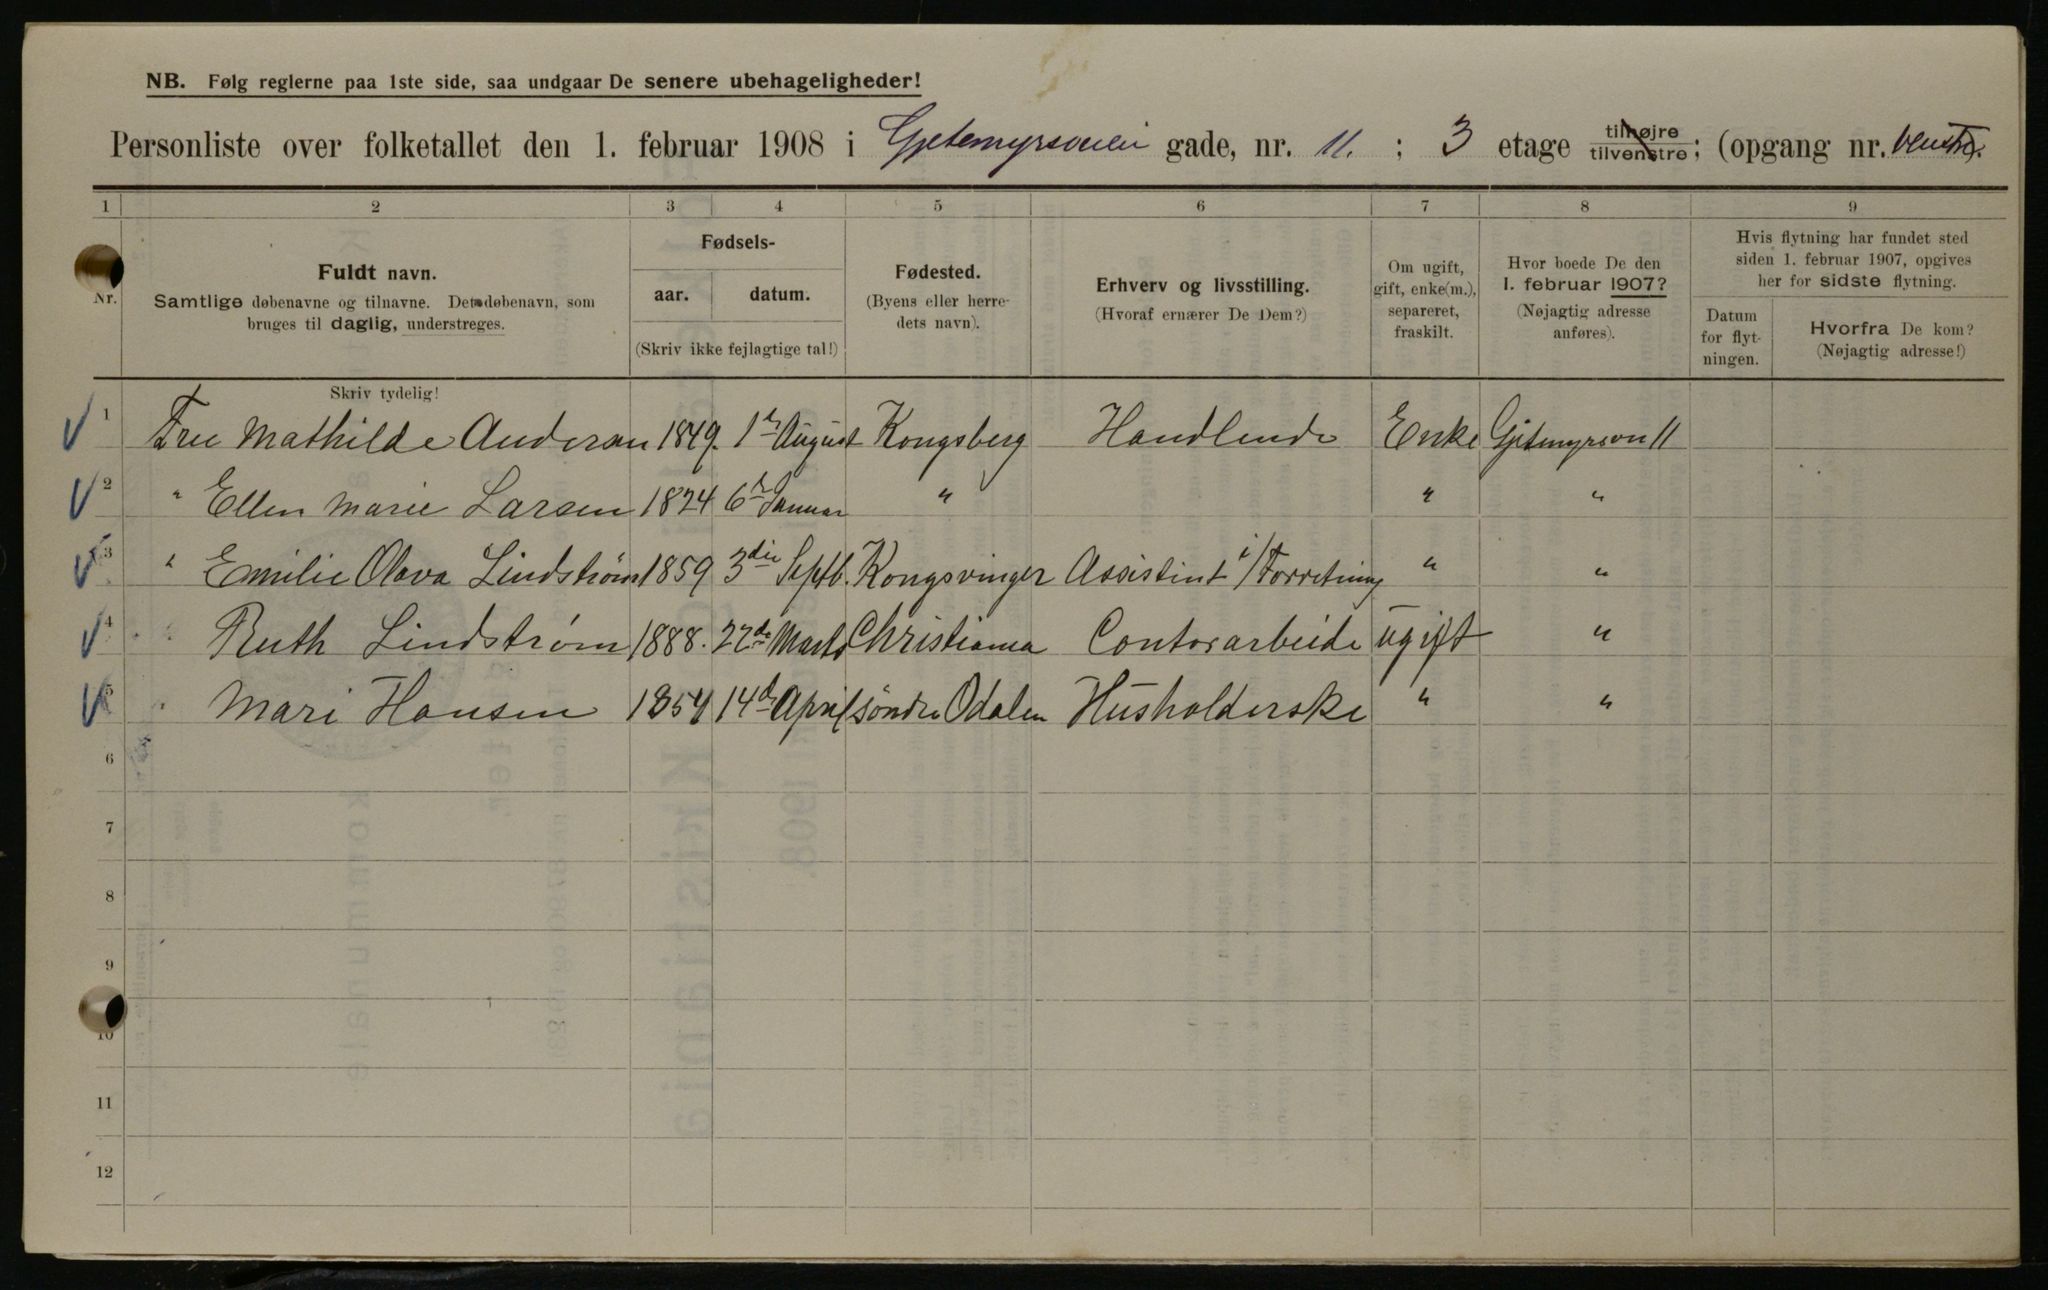 NB. Følg reglerne paa 1ste side, saa undgaar De senere ubehageligheder!
Personliste over folketallet den 1. februar 1908 i Gjetemyrsveien gade, nr. 11. ; 3 etage tilhøjre tilvenstre; (opgang nr. venstre).
1 2 3 4 5 6 7 8 9
Nr.
Fuldt navn.
Samtlige døbenavne og tilnavne. Det døbenavn, som
bruges til daglig, understreges.
Fødsels-
aar. datum.
(Skriv ikke fejlagtige tal!)
Fødested.
(Byens eller herre-
dets navn).
Erhverv og livsstilling.
(Hvoraf ernærer De Dem?)
Om ugift,
gift, enke(m.),
separeret,
fraskilt.
Hvor boede De den
1. februar 1907?
(Nøjagtig adresse
anføres).
Hvis flytning har fundet sted
siden 1. februar 1907, opgives
her for sidste flytning.
Datum
for flyt-
ningen.
Hvorfra De kom?
(Nøjagtig adresse!)
Skriv tydelig!
1 Fru Mathilde Andersen 1849. 1ste August Kongsberg Handlende Enke Gjetemyrsvn 11
2 " Ellen Marie Larsen 1824 6te Januar " " "
3 " Emilie Olava Lindstrøm 1859 3die Septb. Kongsvinger Assistint i/Forretning " "
4 " Ruth Lindstrøm 1888. 22de Marts Christiania Contorarbeide ugift "
5 " Mari Hansen 1854 14de April søndre Odalen Husholderske " "
6
7
8
9
10
11
12